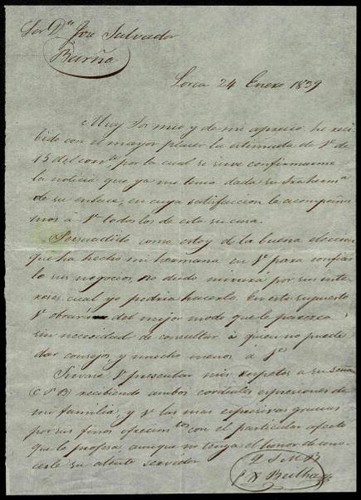 Sor Dn José Salvador
Barña
Lorca 24 Enero 1839
Muy Sor mio y de mi aprecio he reci
bido con el mayor placer la estimada de V de
15 del corrte por la cual se sirve confirmarme
la noticia que ya me tenia dada su
de su enlace, en cuya satisfaccion le acompaña
mos á V todos los de esta su casa.
Persuadido como estoy de la buena eleccion
que ha hecho su hermana en V para confiar
le sus negocios, no dudo mirará por sus inte
reses cual yo podria hacerlo. En este supuesto
V obrará del mejor modo que le parezca
sin necesidad de consultar á quien no puede
dar consejos, y mucho menos á V.
Sirvase V presentar mis respetos á su
C.P.B recibiendo ambos cordiales espresiones de
mi familia, y V las mas espresivas gracias
por sus finos ofrecimtos con el particular afecto
que le profesa aunque no tenga el honor de cono
cerle su atento servidor
Q S M B